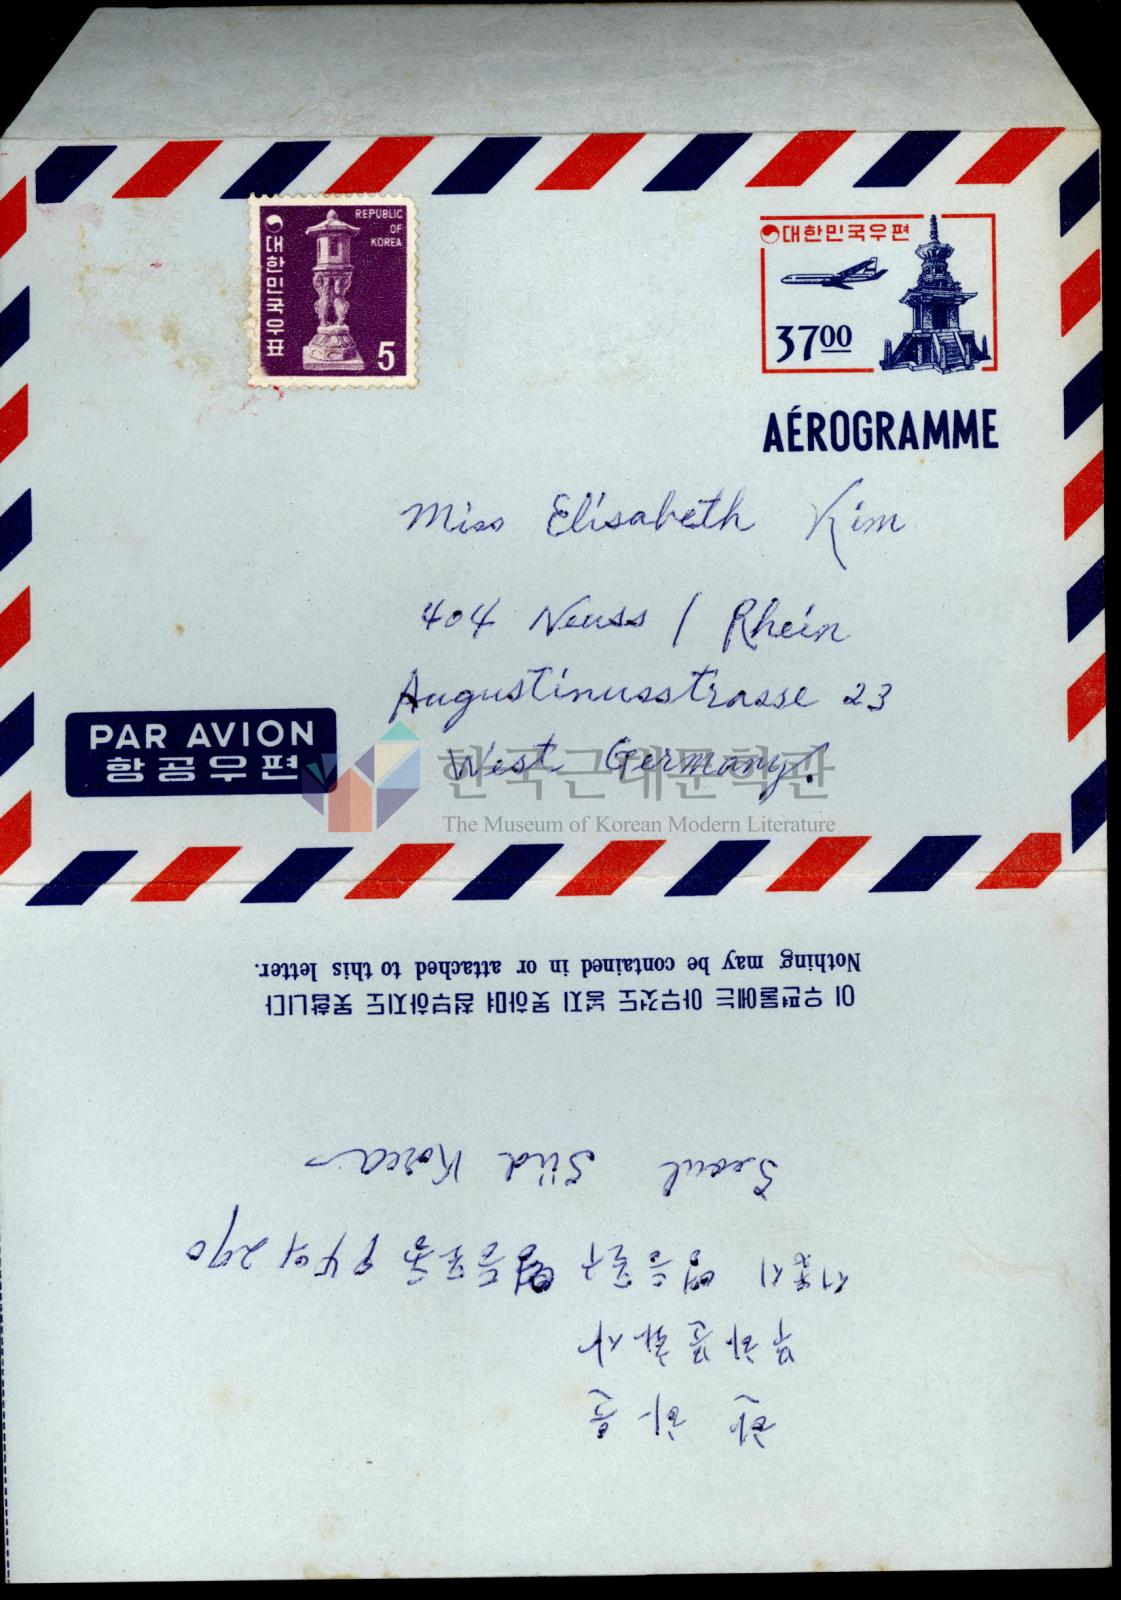 REPUBLIC
OF
KOREA
대한민국우표
5
대한민국우편
3700
AÉROGRAMME
Miss Elisabeth Kim
404 Neuss / Rhein
Augustinusstrasse 23
West Germany.
PAR AVION
항공우편
한국근대문학관
The Museum of Korean Modern Literature
한하운
무하문화사
서울시 영등포구 영등포동 94의 290
Seoul Süd Korea
이 우편물에는 아무것도 넣지 못하며 첨부하지도 못합니다
Nothing may be contained in or attached to this letter.